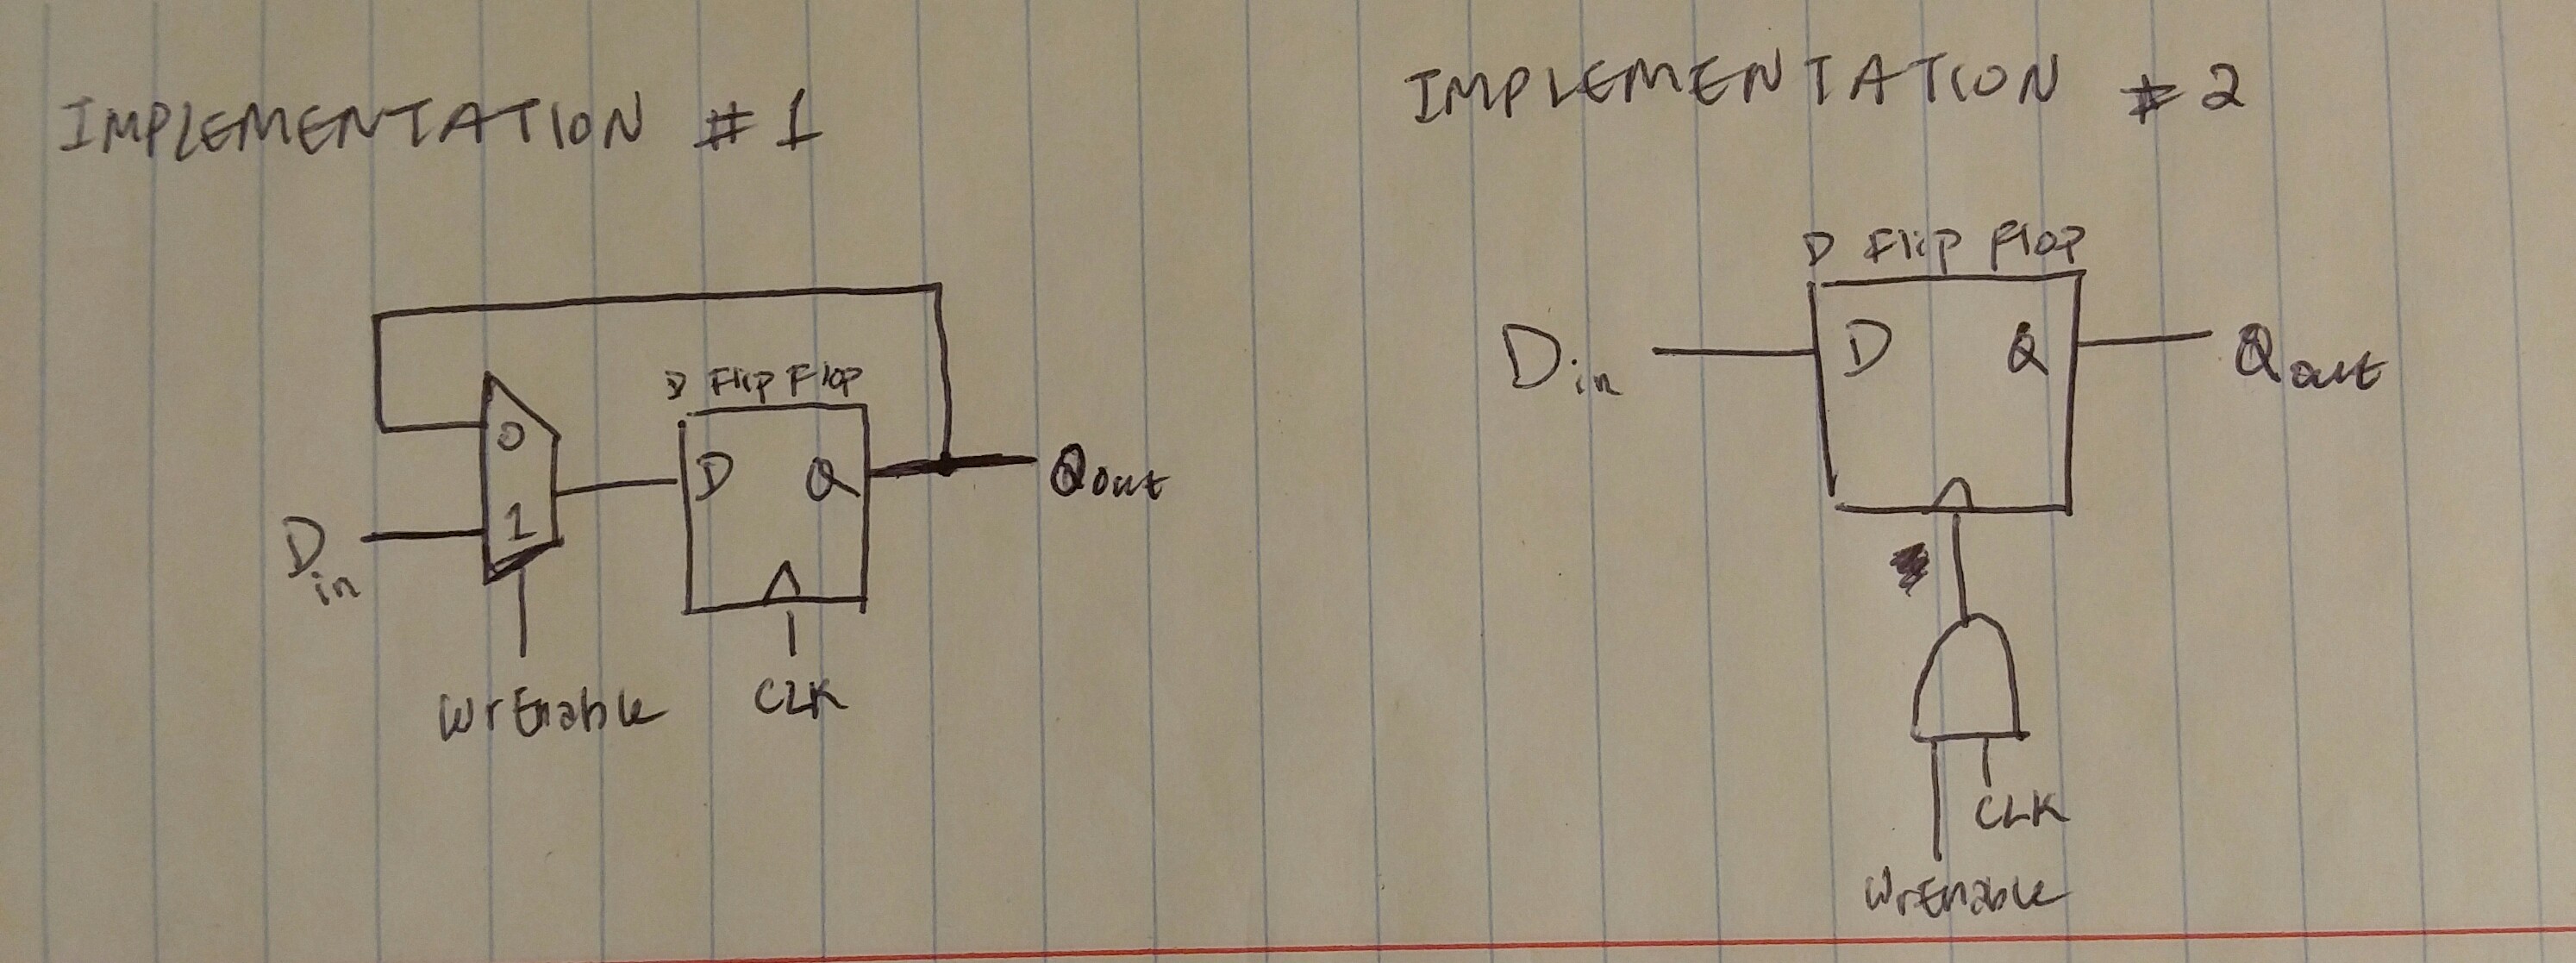 IMPLEMENTATION #1
D Flip Flop
0
D Q
1
Qout
Din
WrEnable
CLK
IMPLEMENTATION #2
D Flip Flop
Din
D Q
Qout
CLK
WrEnable